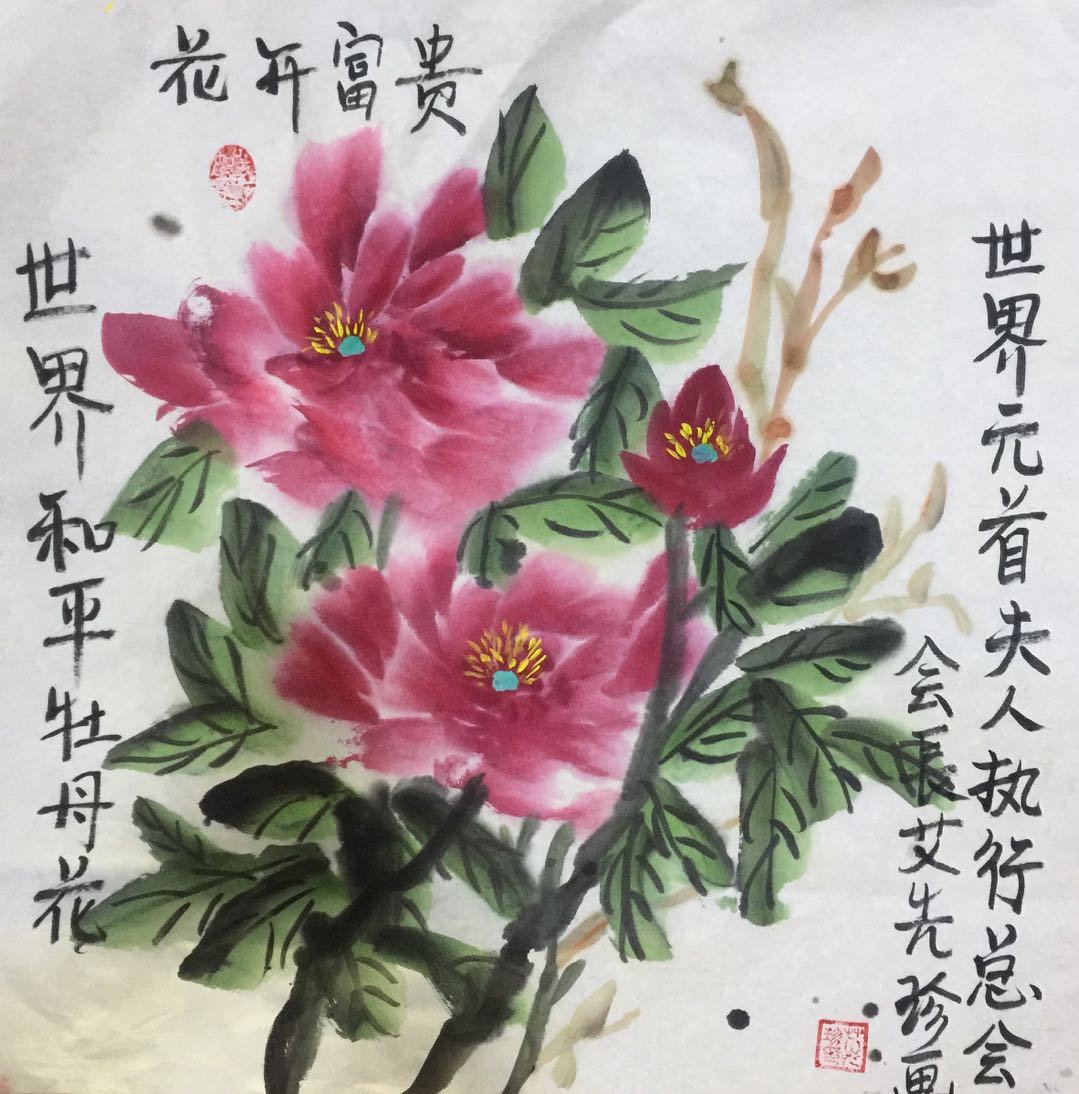 花开富贵
世界元首夫人执行总会
会长艾先珍画
世界和平牡丹花